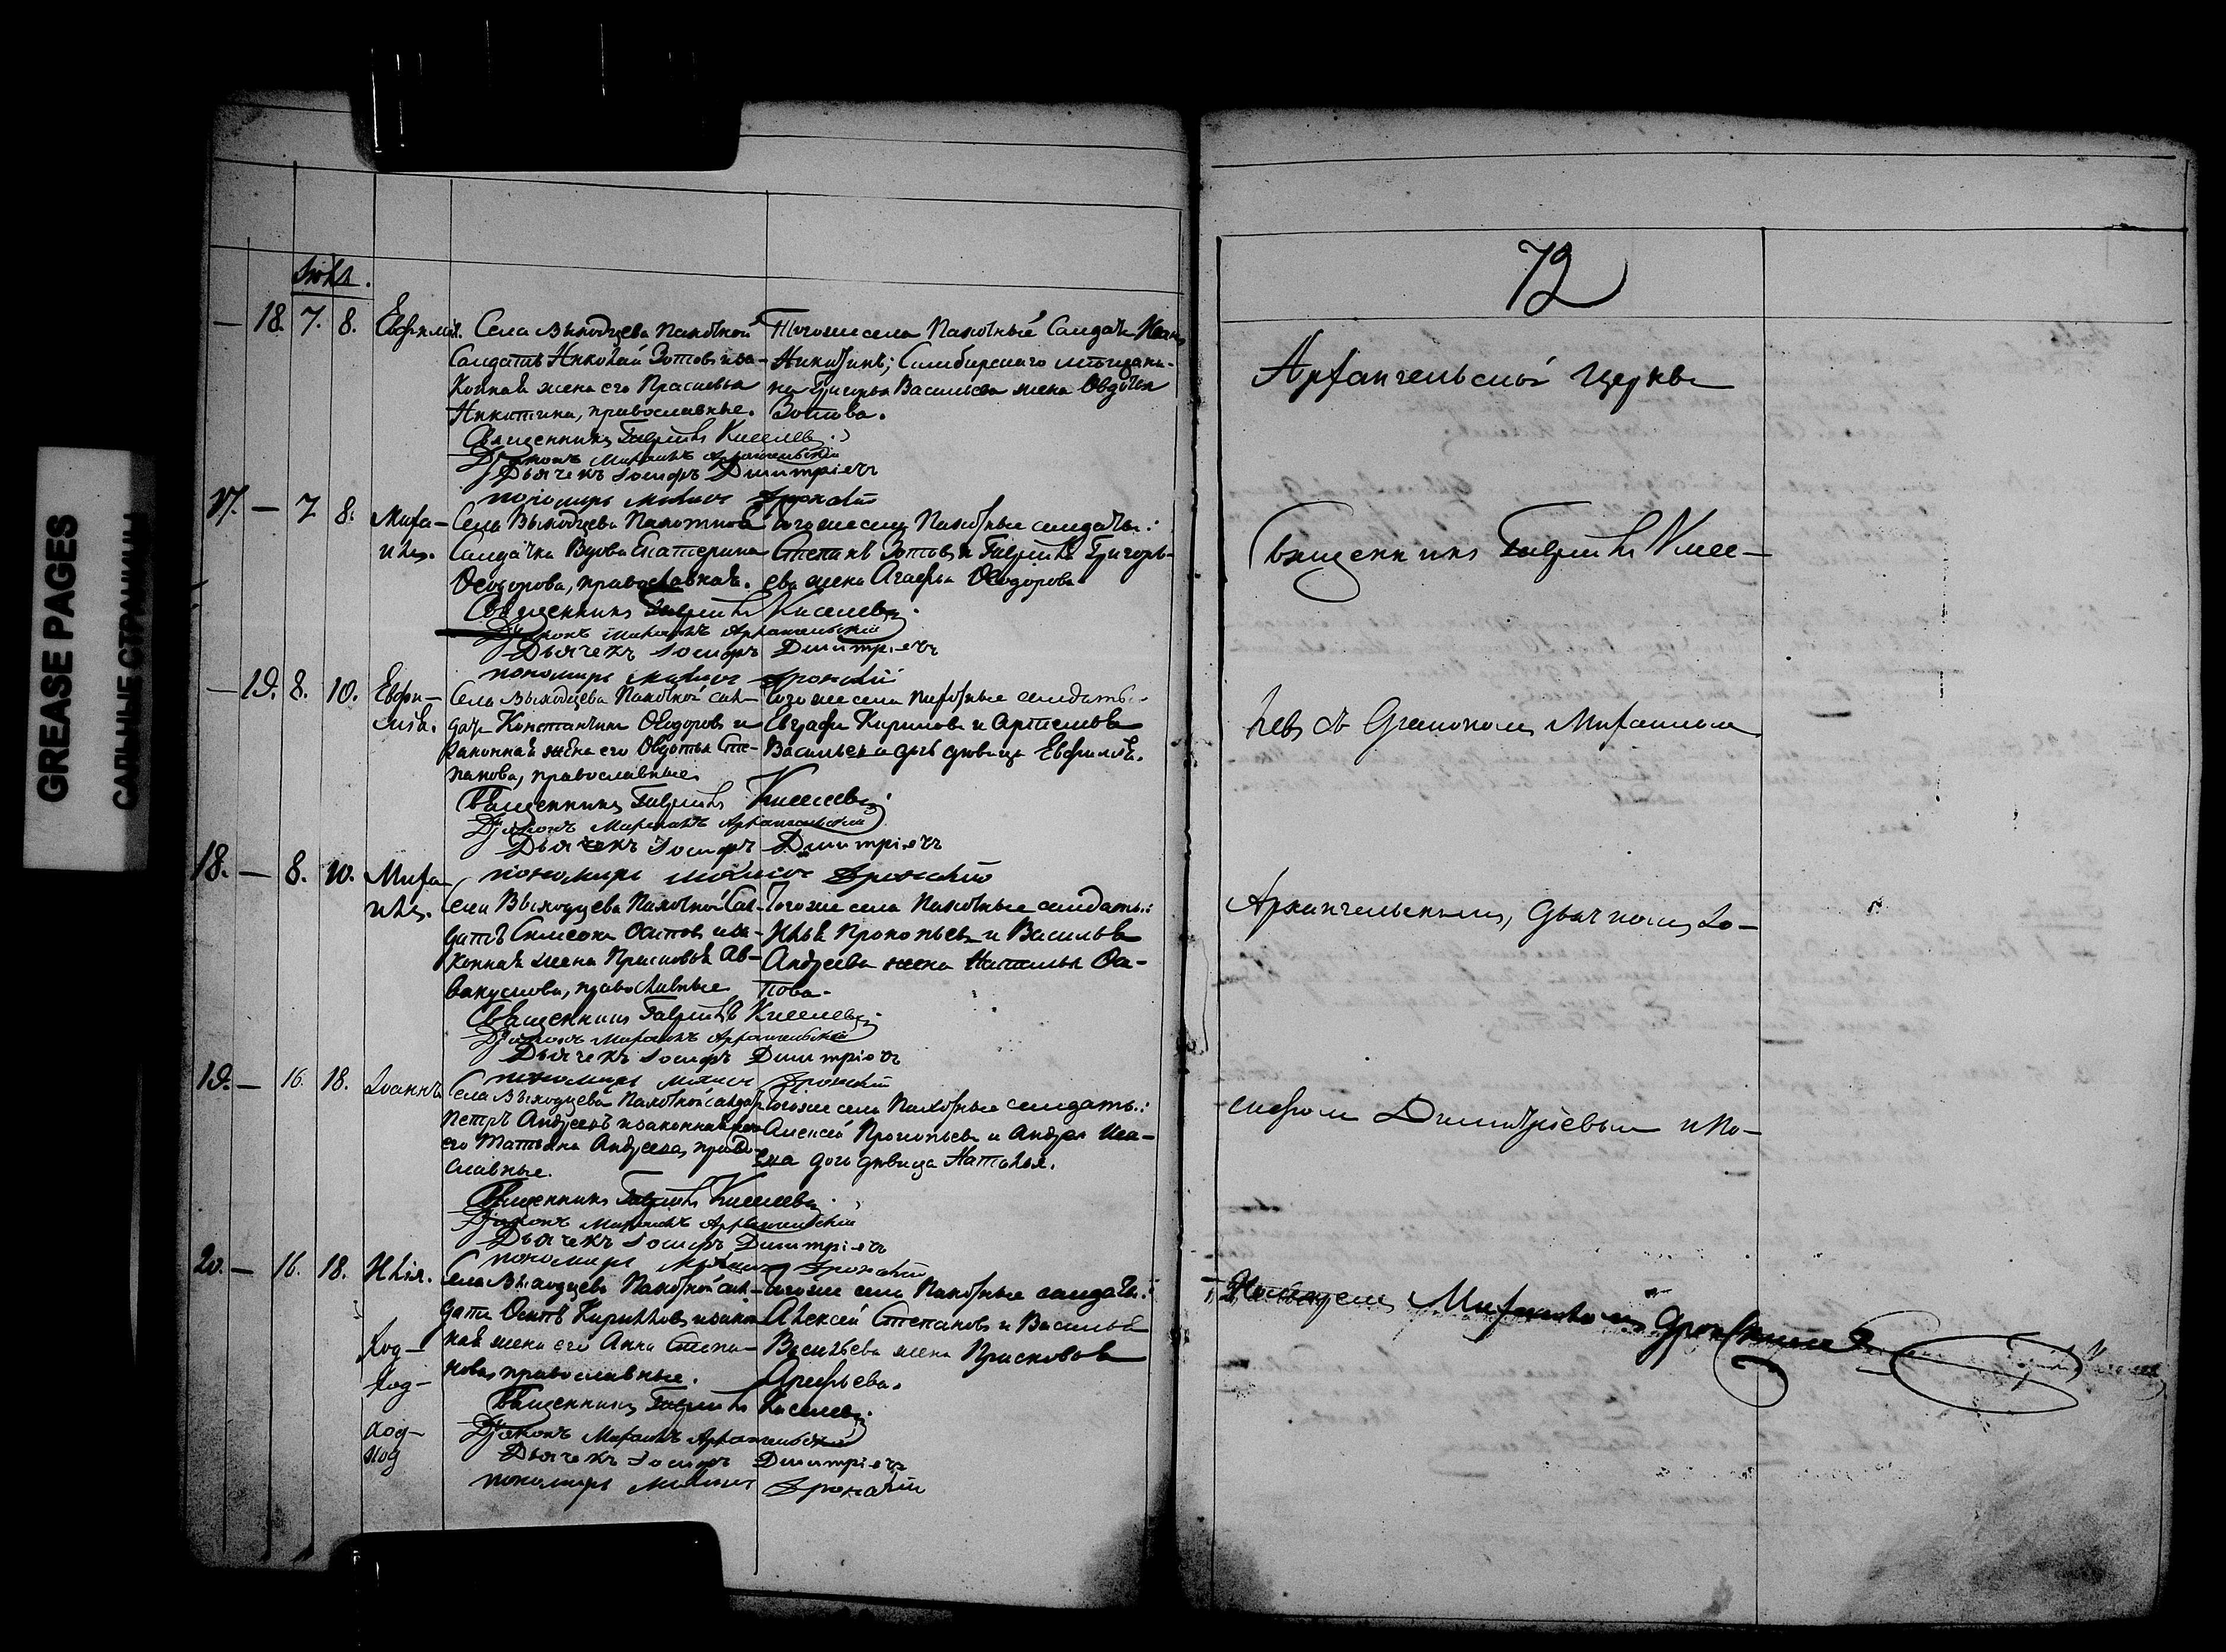 GREASE PAGES
САЛЬНЫЕ СТРАНИЦЫ
72
Іюль.
— 18. 7. 8. Евфимія. Села Выходцева Пахотной
Салдатъ Николай Зотовъ и за-
конная жена его Прасковья
Никитина, православные.
Тогоже села Пахотные Салдатъ Иванъ
Никитинъ; Симбирскаго мѣщани-
на Григорья Васильева жена Овдотья
Зотова.
Священникъ Гавріилъ Киселевъ
Діаконъ Михаилъ Архангельскій
Дьячекъ Іосифъ Димитріевъ
пономарь
17. — 7 8. Михаилъ. Села Выходцева Пахотная
Салдатка Вдова Екатерина
Ѳеодорова, православная.
Тогоже села Пахотные салдаты:
Степанъ Зотовъ и Гавріила Григорь-
ева жена Агафья Ѳеодорова
Священникъ Гавріилъ Киселевъ
Діаконъ Михаилъ Архангельскій
Дьячекъ Іосифъ Димитріевъ
пономарь
— 19. 8. 10. Евфимія. Села Выходцева Пахотной сал-
датъ Константинъ Ѳеодоровъ и
законная жена его Овдотья Сте-
панова, православные
Тогоже села пахотные салдаты:
Евграфъ Кириловъ и Артемья
Васильева дочь дѣвица Евфимія.
Священникъ Гавріилъ Киселевъ
Діаконъ Михаилъ Архангельскій
Дьячекъ Іосифъ Димитріевъ
пономарь
18. — 8. 10. Михаилъ. Села Выходцева Пахотной Сал-
датъ Симеонъ Осиповъ и за-
конная жена Прасковья Ав-
вакумова, православные
Тогоже села Пахотные салдаты:
Илья Прокопьевъ и Василья
Андреева жена Наталья Оси-
пова.
Священникъ Гавріилъ Киселевъ
Діаконъ Михаилъ Архангельскій
Дьячекъ Іосифъ Димитріевъ
пономарь
19. — 16. 18. Іоаннъ. Села Выходцева Пахотной салдатъ
Петръ Андреевъ и законная жена
его Татьяна Андреева, право-
славные.
Тогоже села Пахотные салдаты:
Алексей Прокопьевъ и Андрея Ива-
нова дочь дѣвица Наталья.
Священникъ Гавріилъ Киселевъ
Діаконъ Михаилъ Архангельскій
Дьячекъ Іосифъ Димитріевъ
пономарь
20. — 16. 18. Илія. Села Выходцева Пахотной сал-
датъ Осипъ Кирилловъ и закон-
ная жена его Анна Степа-
нова, православные.
Тогоже села Пахотные салдаты:
Алексей Степановъ и Василья
Васильева жена Прасковья
Арефьева.
Священникъ Гавріилъ Киселевъ
Діаконъ Михаилъ Архангельскій
Дьячекъ Іосифъ Димитріевъ
пономарь
Архангельской церкви
Священникъ Гавріилъ Кисе-
левъ съ Діакономъ Михаиломъ
Архангельскимъ, дьячкомъ Іо-
сифомъ Димитріевымъ и по-